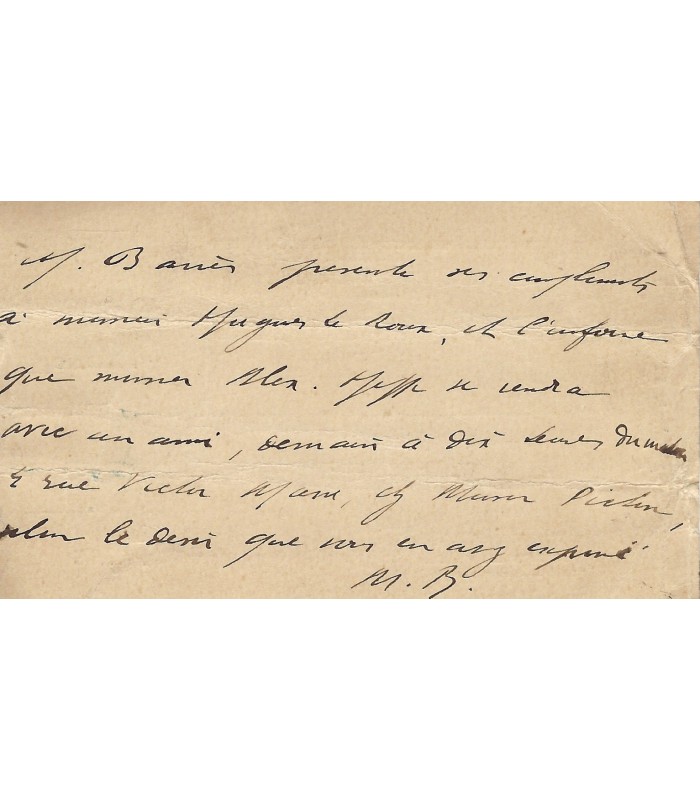 M. Barrès présente ses compliments
à monsieur Hugues Le Roux, et l'informe
que monsieur Alex. se rendra
avec un ami, demain à dix heures du matin
5 rue Victor Massé, chez Monsieur
selon le désir que vous en avez exprimé
M. B.